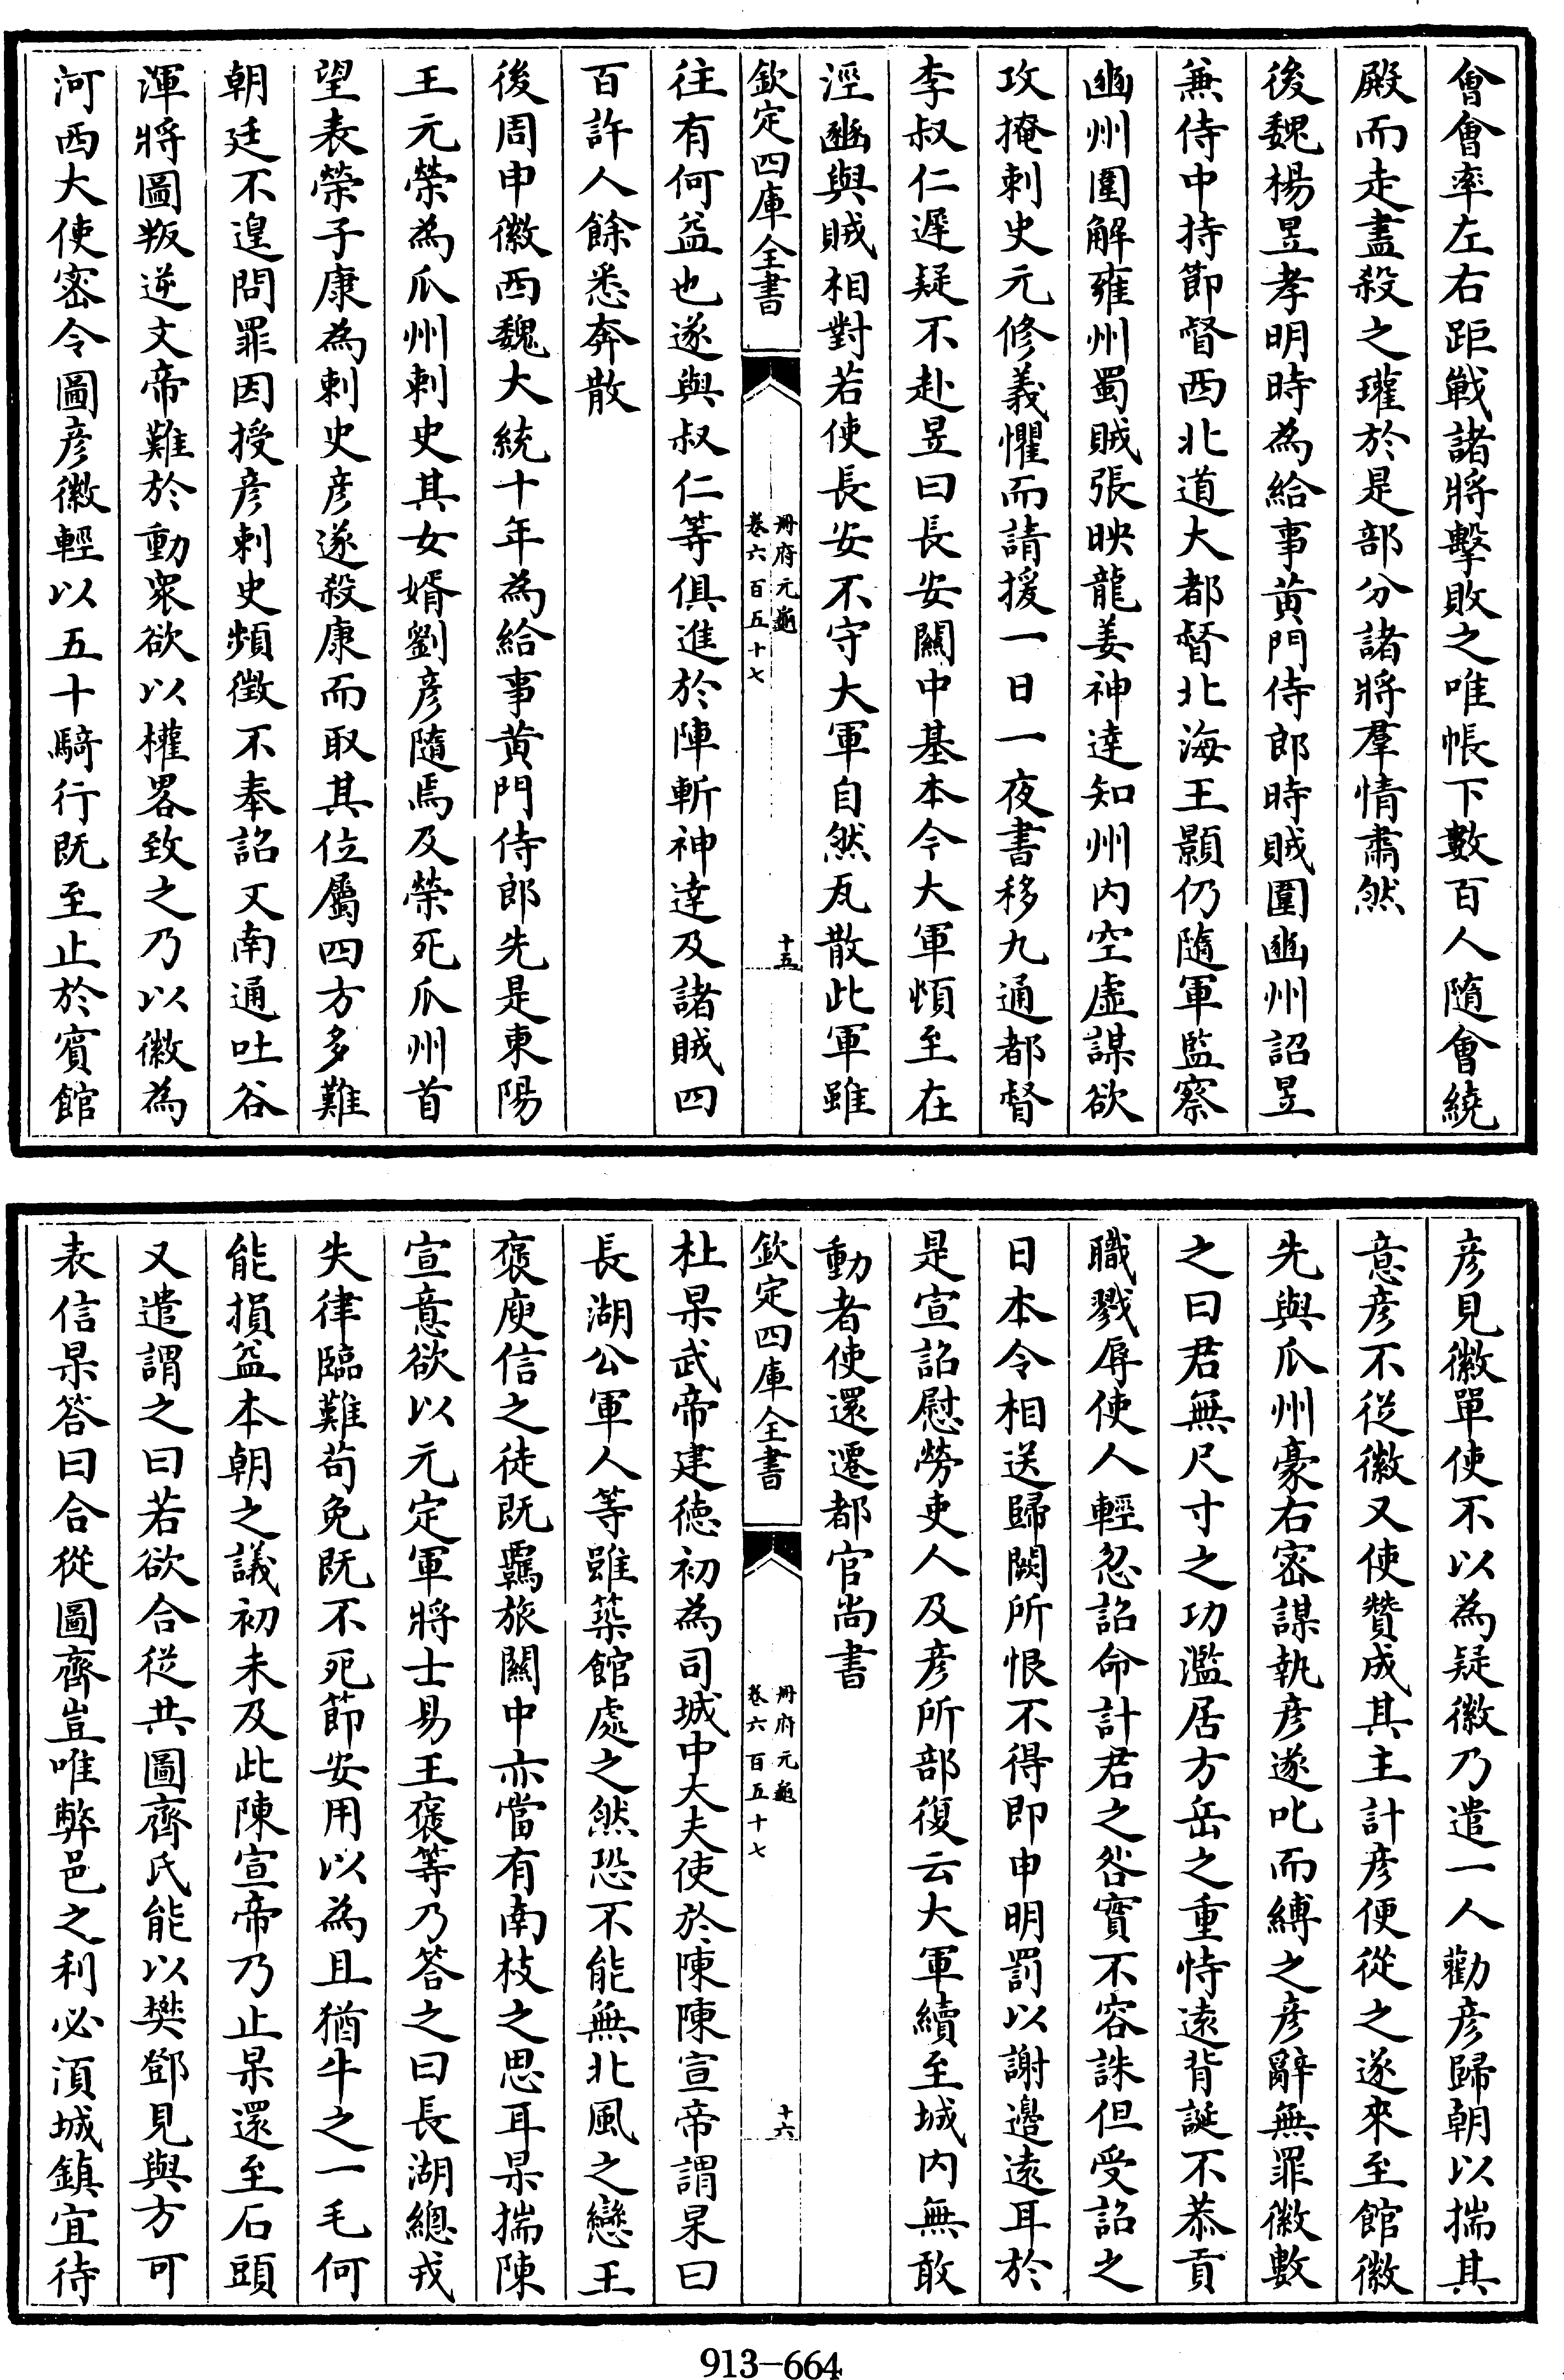 會會率左右距戰諸將擊敗之唯帳下數百人隨會繞
殿而走盡殺之瓘於是部分諸將羣情肅然
後魏楊昱孝明時為給事黄門侍郎時賊圍豳州詔昱
兼侍中持節督西北道大都督北海王顥仍隨軍監察
豳州圍解雍州蜀賊張映龍姜神達知州内空虛謀欲
攻掩刺史元修義懼而請援一日一夜書移九通都督
李叔仁遲疑不赴昱曰長安關中基本今大軍頓至在
涇豳與賊相對若使長安不守大軍自然瓦散此軍雖
欽定四庫全書
冊府元龜
卷六百五十七
十五
往有何益也遂與叔仁等俱進於陣斬神達及諸賊四
百許人餘悉奔散
後周申徽西魏大統十年為給事黄門侍郎先是東陽
王元榮為瓜州刺史其女婿劉彦隨焉及榮死瓜州首
望表榮子康為刺史彦遂殺康而取其位屬四方多難
朝廷不遑問罪因授彦刺史頻徵不奉詔又南通吐谷
渾將圖叛逆文帝難於動衆欲以權畧致之乃以徽為
河西大使密令圖彦徽輕以五十騎行既至止於賓館
彦見徽單使不以為疑徽乃遣一人勸彦歸朝以揣其
意彦不從徽又使贊成其主計彦便從之遂來至館徽
先與瓜州豪右密謀執彦遂叱而縛之彦辭無罪徽數
之曰君無尺寸之功濫居方岳之重恃遠背誕不恭貢
職戮辱使人輕忽詔命計君之咎實不容誅但受詔之
日本令相送歸闕所恨不得即申明罰以謝邊遠耳於
是宣詔慰勞吏人及彦所部復云大軍續至城内無敢
動者使還遷都官尚書
欽定四庫全書
冊府元龜
卷六百五十七
十六
杜杲武帝建徳初為司城中大夫使於陳陳宣帝謂杲曰
長湖公軍人等雖築館處之然恐不能無北風之戀王
褒庾信之徒既羈旅關中亦當有南枝之思耳杲揣陳
宣意欲以元定軍將士易王褒等乃答之曰長湖總戎
失律臨難苟免既不死節安用以為且猶牛之一毛何
能損益本朝之議初未及此陳宣帝乃止杲還至石頭
又遣謂之曰若欲合從共圖齊氏能以樊鄧見與方可
表信杲答曰合從圖齊豈唯弊邑之利必須城鎮宜待
913-664